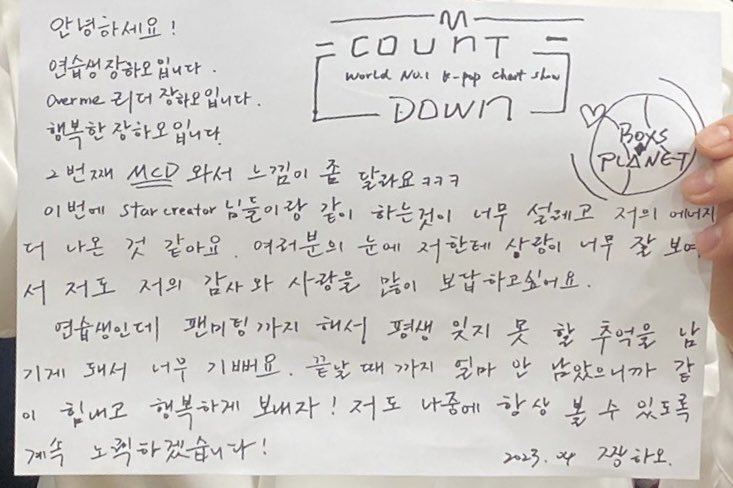 안녕하세요!
연습생 장하오입니다.
Over me 리더 장하오입니다.
행복한 장하오입니다.
M
COUNT
World No.1 K-pop Chart Show
DOWN
BOYS
PLANET
2번째 MCD 와서 느낌이 좀 달라요ㅋㅋㅋ
이번에 star creator 님들이랑 같이 하는것이 너무 설레고 저의 에너지
더 나온 것 같아요. 여러분의 눈에 저한테 상랑이 너무 잘 보여
서 저도 저의 감사와 사랑을 많이 보답하고싶어요.
연습생인데 팬미팅까지 해서 평생 잊지 못 할 추억을 남
기게 돼서 너무 기뻐요. 끝날 때 까지 얼마 안 남았으니까 같
이 힘내고 행복하게 보내자! 저도 나중에 항상 볼 수 있도록
계속 노력하겠습니다!
2023. 04 장하오.